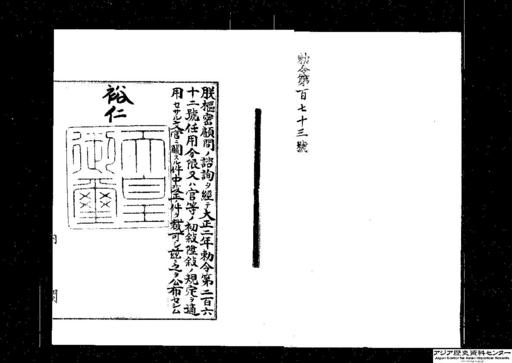 勅令第百七十三號
朕樞密顧問ノ諮詢ヲ經テ大正二年勅令第二百六
十二號任用分限又ハ官等ノ初敍陞敍ノ規定ヲ適
用セサル文官ニ關スル件中改正ノ件ヲ裁可シ茲ニ之ヲ公布セシム
裕仁
天皇御璽
内閣
アジア歴史資料センター
Japan Center for Asian Historical Records